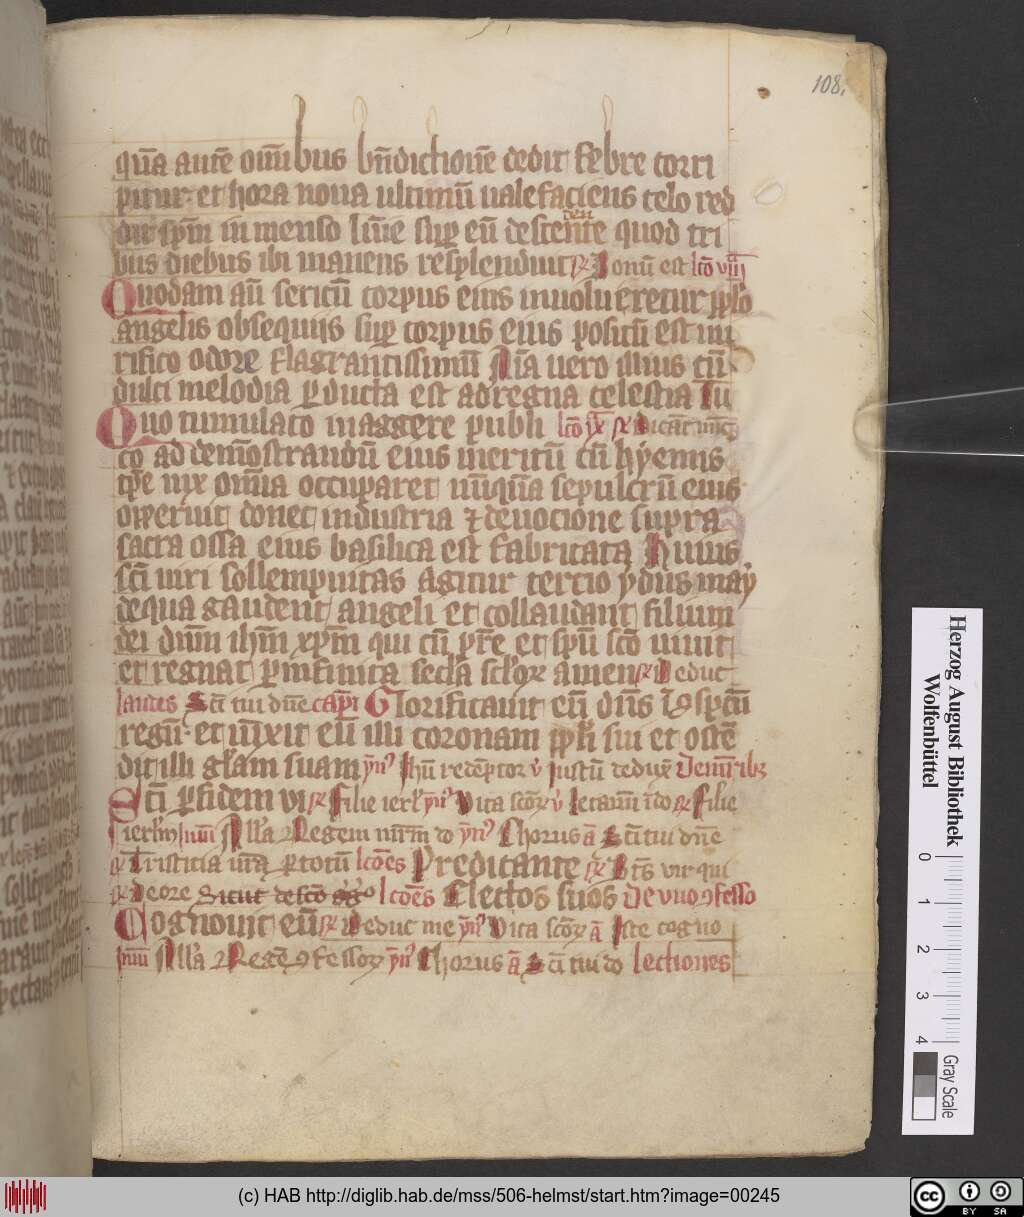 108.
qua̅ aute̅ om̅ibus bn̅dictione̅ dedit febre corri
pitur· et hora nona ultimu̅ ualefaciens celo red
dit sp̅m in menso lu̅ie sup̲ eu̅ descendente quod tri
bus diebus ibi manens resplenduit ℟ Bonu̅ est lc̅o viii
Quodam au̅ sericu̅ corpus eius inuolueretur
angelis obsequiis sup̲ corpus eius positu̅ est mi
rifico odore flagrantissimu̅ Ani̅a uero illius cu̅
dulci melodia p̲ducta est ad regna celestia Tu
Quo tumulato in aggere publi lc̅o ix ℟
co ad demo̅strandu̅ eius meritu̅ cu̅ hyemis
tp̅e nix om̅ia occuparet nu̅qua̅ sepulcru̅ eius
op̲eruit donec industria ⁊ deuocione supra
sacra ossa eius basilica est fabricata Huius
sc̅i uiri sollempnitas agitur tercio ydus may
de qua gaudent angeli et collaudant filium
dei dn̅m ih̅m xp̅m qui cu̅ p̅re et sp̅u sc̅o uiuit
et regnat p̲ infinita sec̅la sc̅lor̅ amen ℟ Deduc
laudes Sc̅i tui dn̅e cap̅i Glorificauit eu̅ dn̅s
regu̅· et iu̅xit eu̅ illi coronam pp̅li sui et oste̅
dit illi gl̅am suam yn̅ Ih̅u rede̅ptor v̓ Iustu̅ deduxit
Sc̅i p̲ fidem vi ℟ Filie ierl̅ yn̅ Vita sc̅or̅ v̓ ℟ Filie
ierl̅m Inui̅ All̅a Regem yn̅ Chorus a̅ Sc̅i tui dn̅e
℟ Tristicia ur̅a p̲ totu̅ lc̅o̅es Predicante ℟ Bt̅s vir qui
℟ De ore Sicut de sc̅o lc̅o̅es Electos suos De vno ꝯfesso
Cognouit eu̅ ℟ Deduc me yn̅ Vita sc̅or̅ a̅ Iste cogno
Inui̅ All̅a Rege̅ ꝯfessor̅ yn̅ Chorus a̅ Sc̅i tui do lectiones
Herzog August Bibliothek
Wolfenbüttel
0 1 2 3 4
Gray Scale
(c) HAB http://diglib.hab.de/mss/506-helmst/start.htm?image=00245
cc BY SA